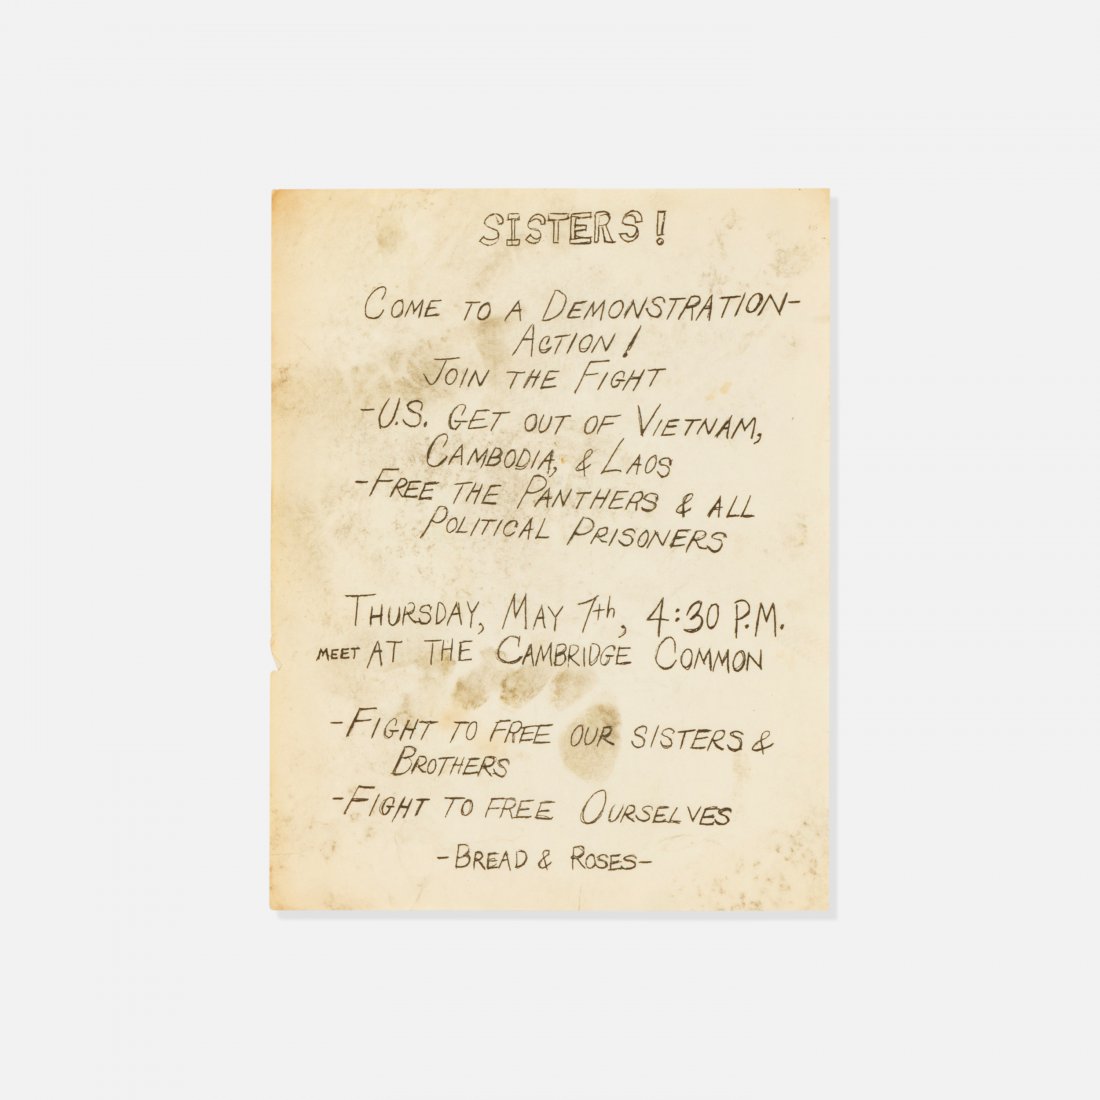 SISTERS!
COME TO A DEMONSTRATION-
ACTION!
JOIN THE FIGHT
-U.S. GET OUT OF VIETNAM,
CAMBODIA, & LAOS
-FREE THE PANTHERS & ALL
POLITICAL PRISONERS
THURSDAY, MAY 7th, 4:30 P.M.
MEET AT THE CAMBRIDGE COMMON
-FIGHT TO FREE OUR SISTERS &
BROTHERS
-FIGHT TO FREE OURSELVES
-BREAD & ROSES-